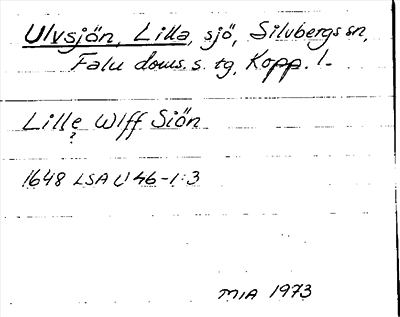 Ulvsjön, Lilla, sjö, Silvbergs sn,
Falu doms. s. tg, Kopp. l.
Lille Wlff Siön
?
1648 LSA U 46-1:3
MIA 1973